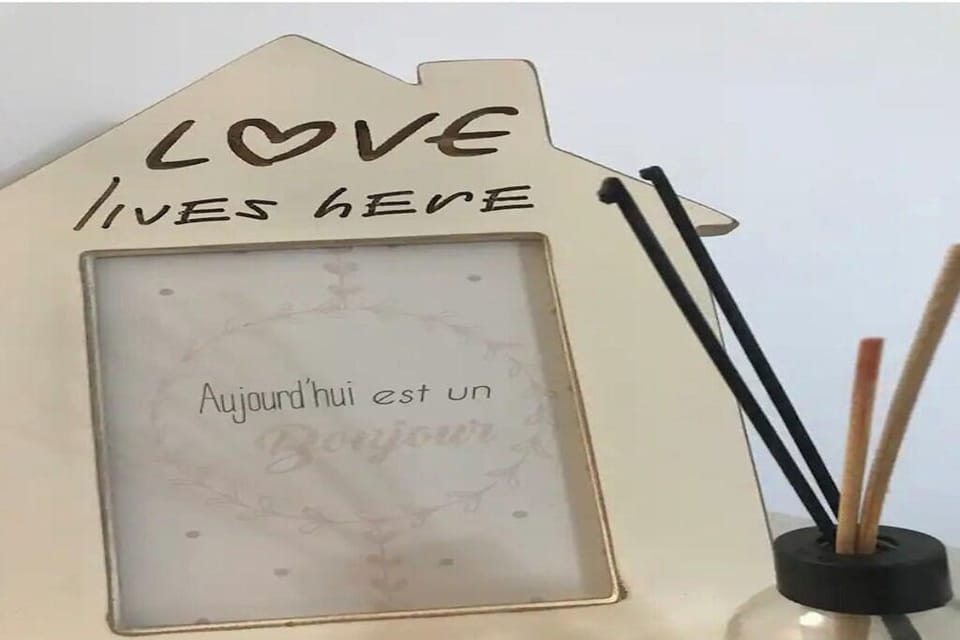 LOVE
lives here
Aujourd'hui est un
Bonjour